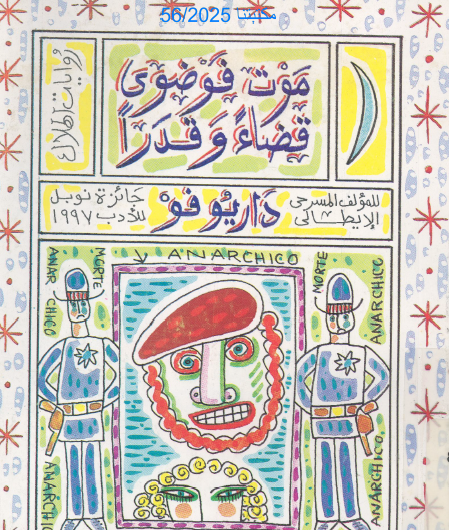 مكتبتنا 56/2025
روايات الهلال
موت فوضوي
قضاءً وقدراً
للمؤلف المسرحى
الإيطالى
داريو فو
جائزة نوبل
للأدب ١٩٩٧
ANARCHICO
MORTE
ANARCHICO
MORTE
ANARCHICO
ANARCHICO
ANARCHICO